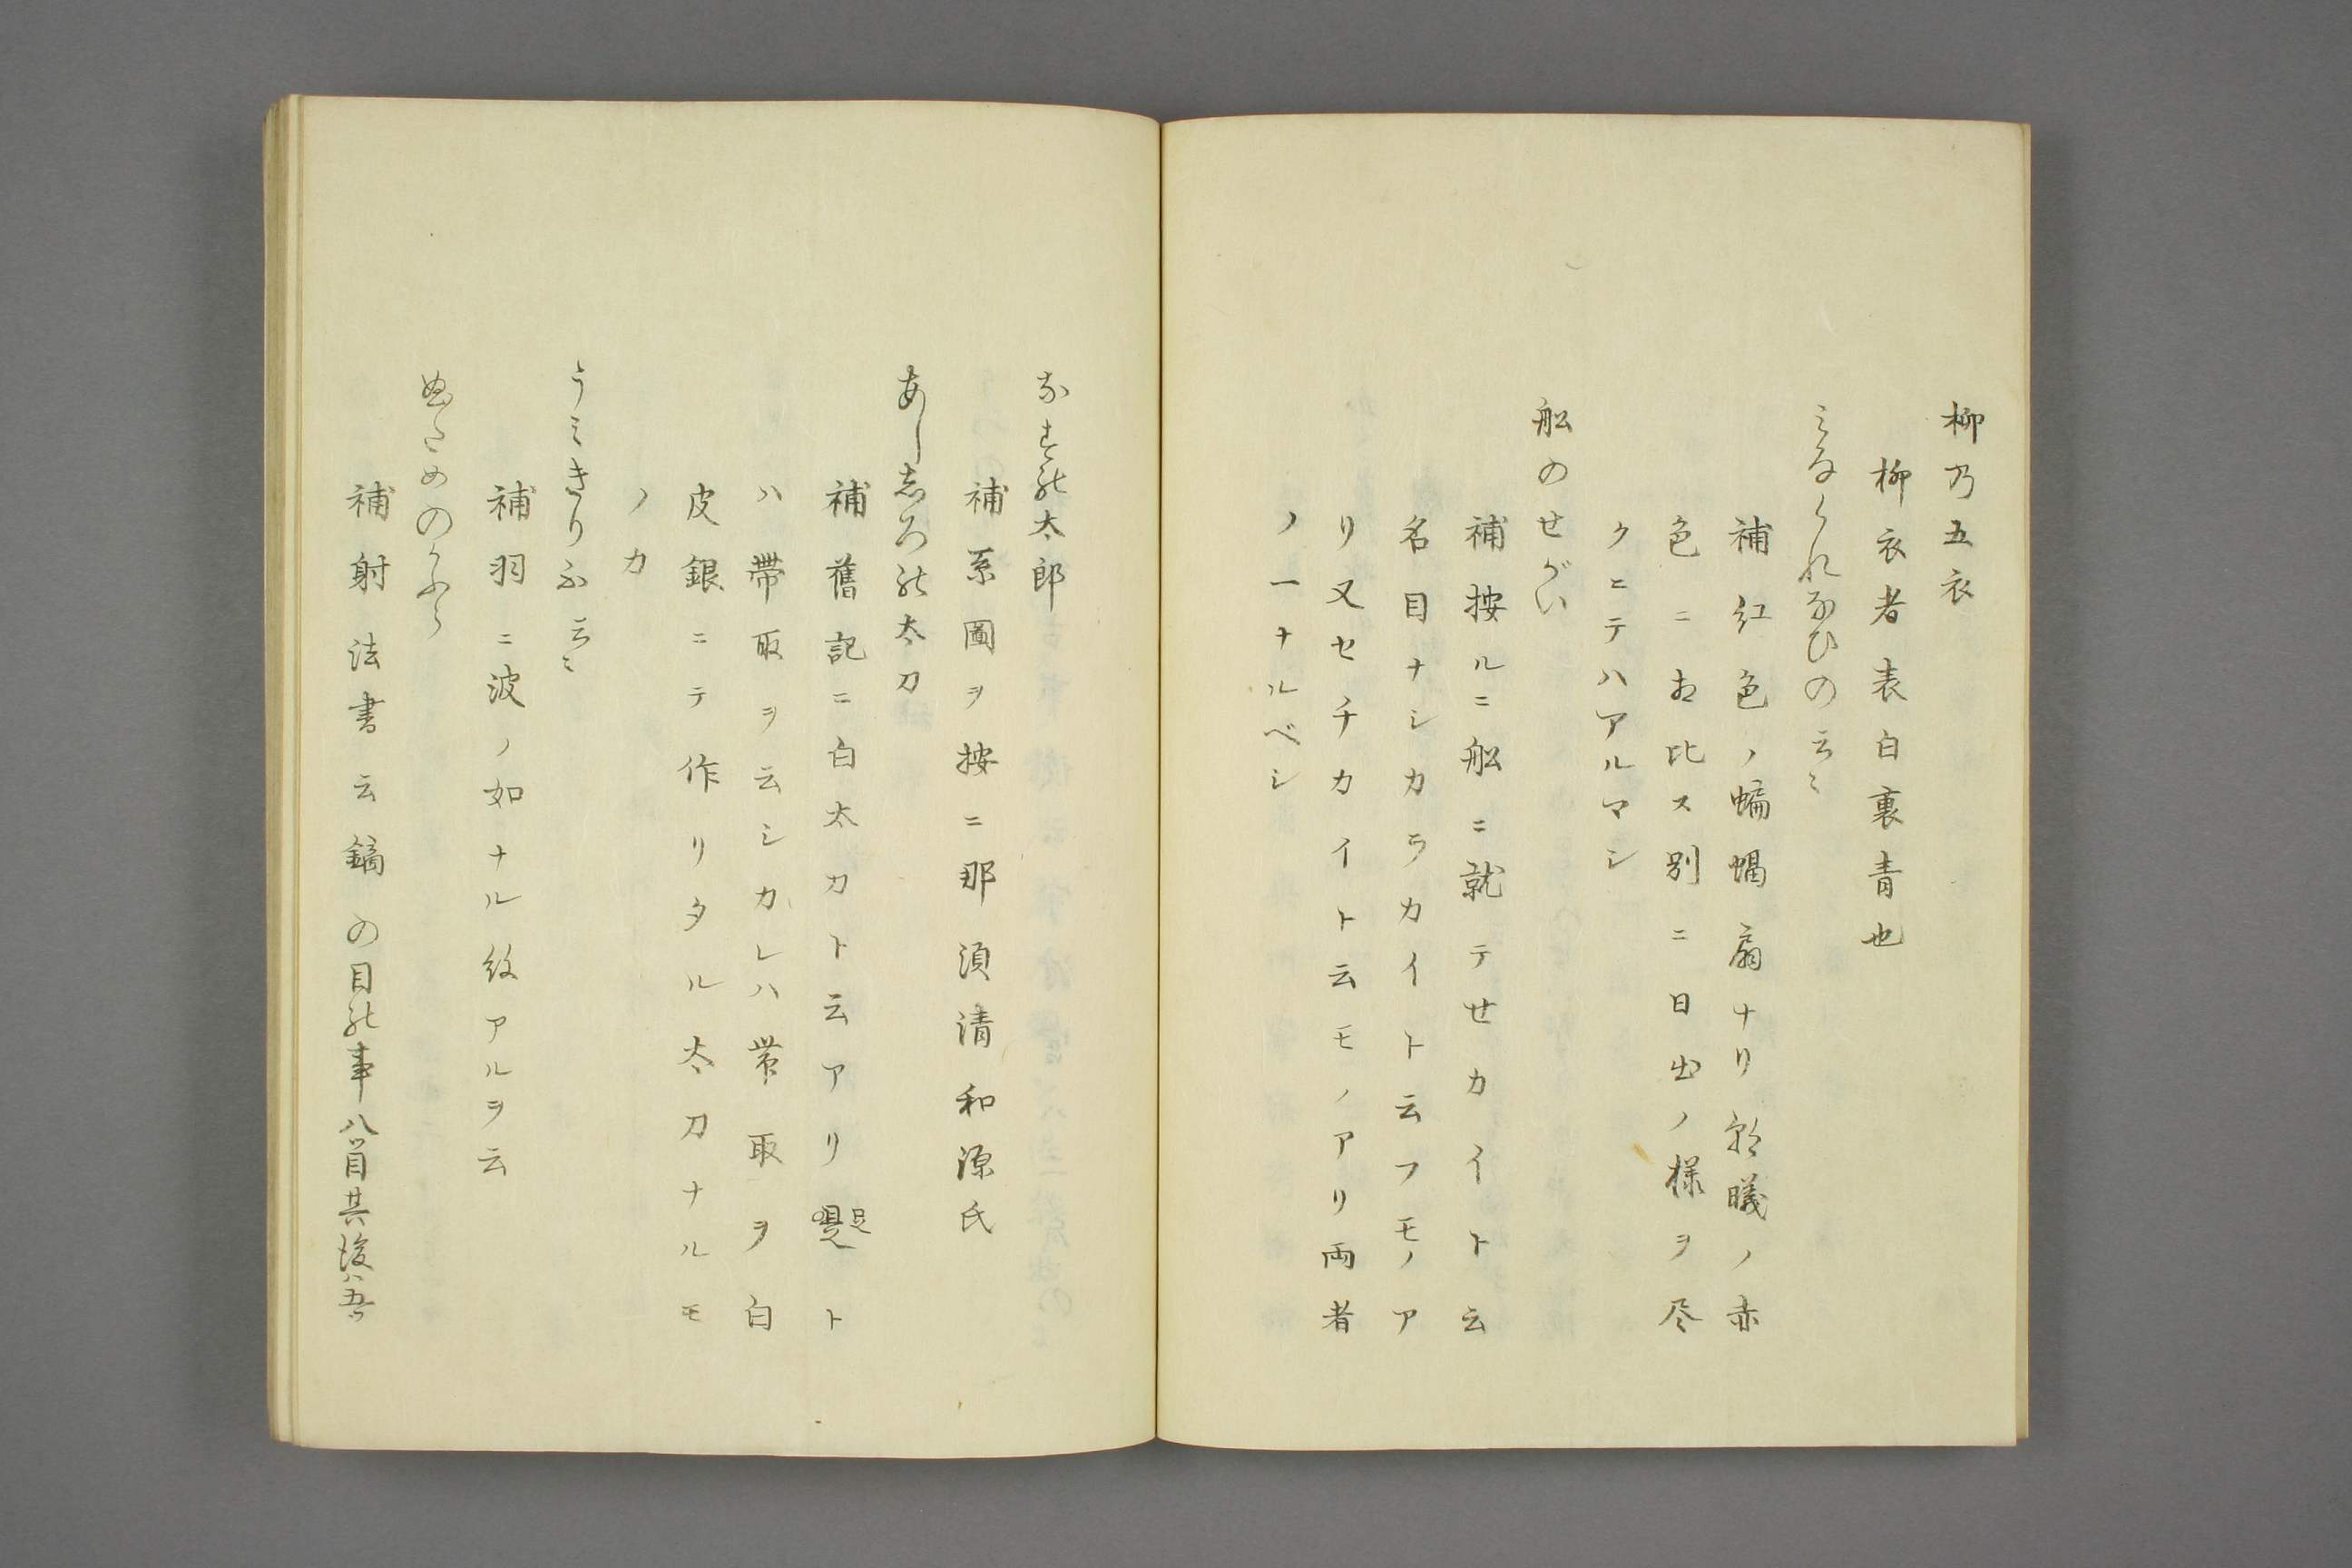 柳乃五衣
柳衣者表白裏青也
みなくれなひの云々
補紅色ノ蝙蝠扇ナリ朝曦ノ赤
色ニお比ス別ニ日出ノ様ヲ尽
クニテハアルマシ
船のせがい
補按ルニ船ニ就テせカイト云
名目ナシカラカイト云フモノア
リ又セチカイト云モノアリ両者
ノ一ナルベシ
なす能太郎
補系圖ヲ按ニ那須清和源氏
あし志ろ能太刀
補舊記ニ白太刀ト云アリ足ト
ハ帶取ヲ云シカレハ帶取ヲ白
皮銀ニテ作リタル太刀ナルモ
ノカ
うミきりふ云々
補羽ニ波ノ如ナル紋アルヲ云
ぬための
補射法書云鏑の目能事八目其後ハ五ツ